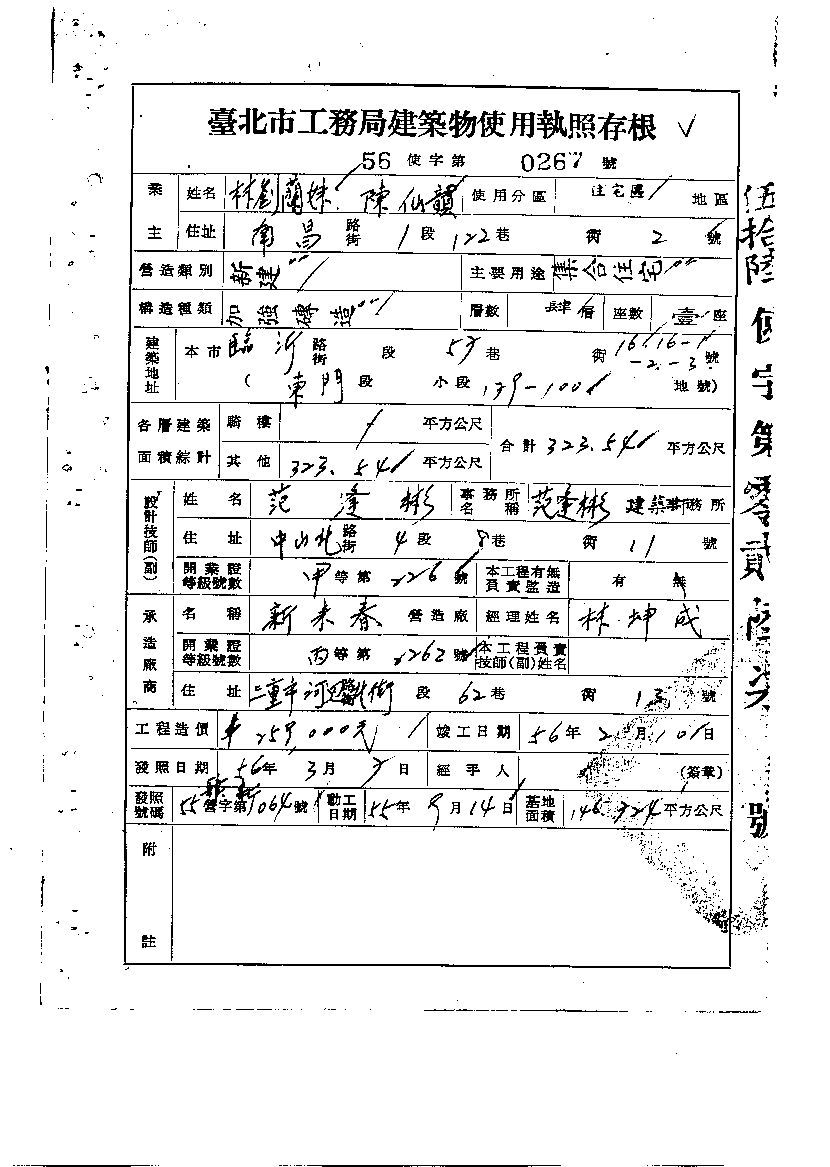 臺北市工務局建築物使用執照存根
56 使字第 0267 號
業主 姓名 林劉蘭妹 陳仙 使用分區 住宅區 地區
住址 南昌 路街 1 段 122 巷 街 2 號
營造類別 新建 主要用途 集合住宅
構造種類 加強磚造 層數 層 座數 壹 座
建築地址 本市 臨沂 路街 段 57 巷 街 16 16-1 -2 -3 號
( 東門 段 小段 179-100 地號)
各層建築面積綜計 騎樓 / 平方公尺 合計 323.54 平方公尺
其他 323.54 平方公尺
設計技師(副) 姓名 范逢彬 事務所名稱 范逢彬 建築師事務所
住址 中山北 路街 4 段 8 巷 街 11 號
開業證等級號數 甲 等第 2266 號 本工程有無負責監造 有 無
承造廠商 名稱 新來春 營造廠 經理姓名 林坤成
開業證等級號數 丙 等第 2262 號 本工程負責技師(副)姓名
住址 三重市河邊北街 段 62 巷 街 13 號
工程造價 259,000元 竣工日期 56 年 2 月 10 日
發照日期 56 年 3 月 7 日 經手人 (簽章)
發照號碼 55 營字第 1064 號 動工日期 55 年 9 月 14 日 基地面積 146.724 平方公尺
附註
伍拾陸使字第零貳陸柒號